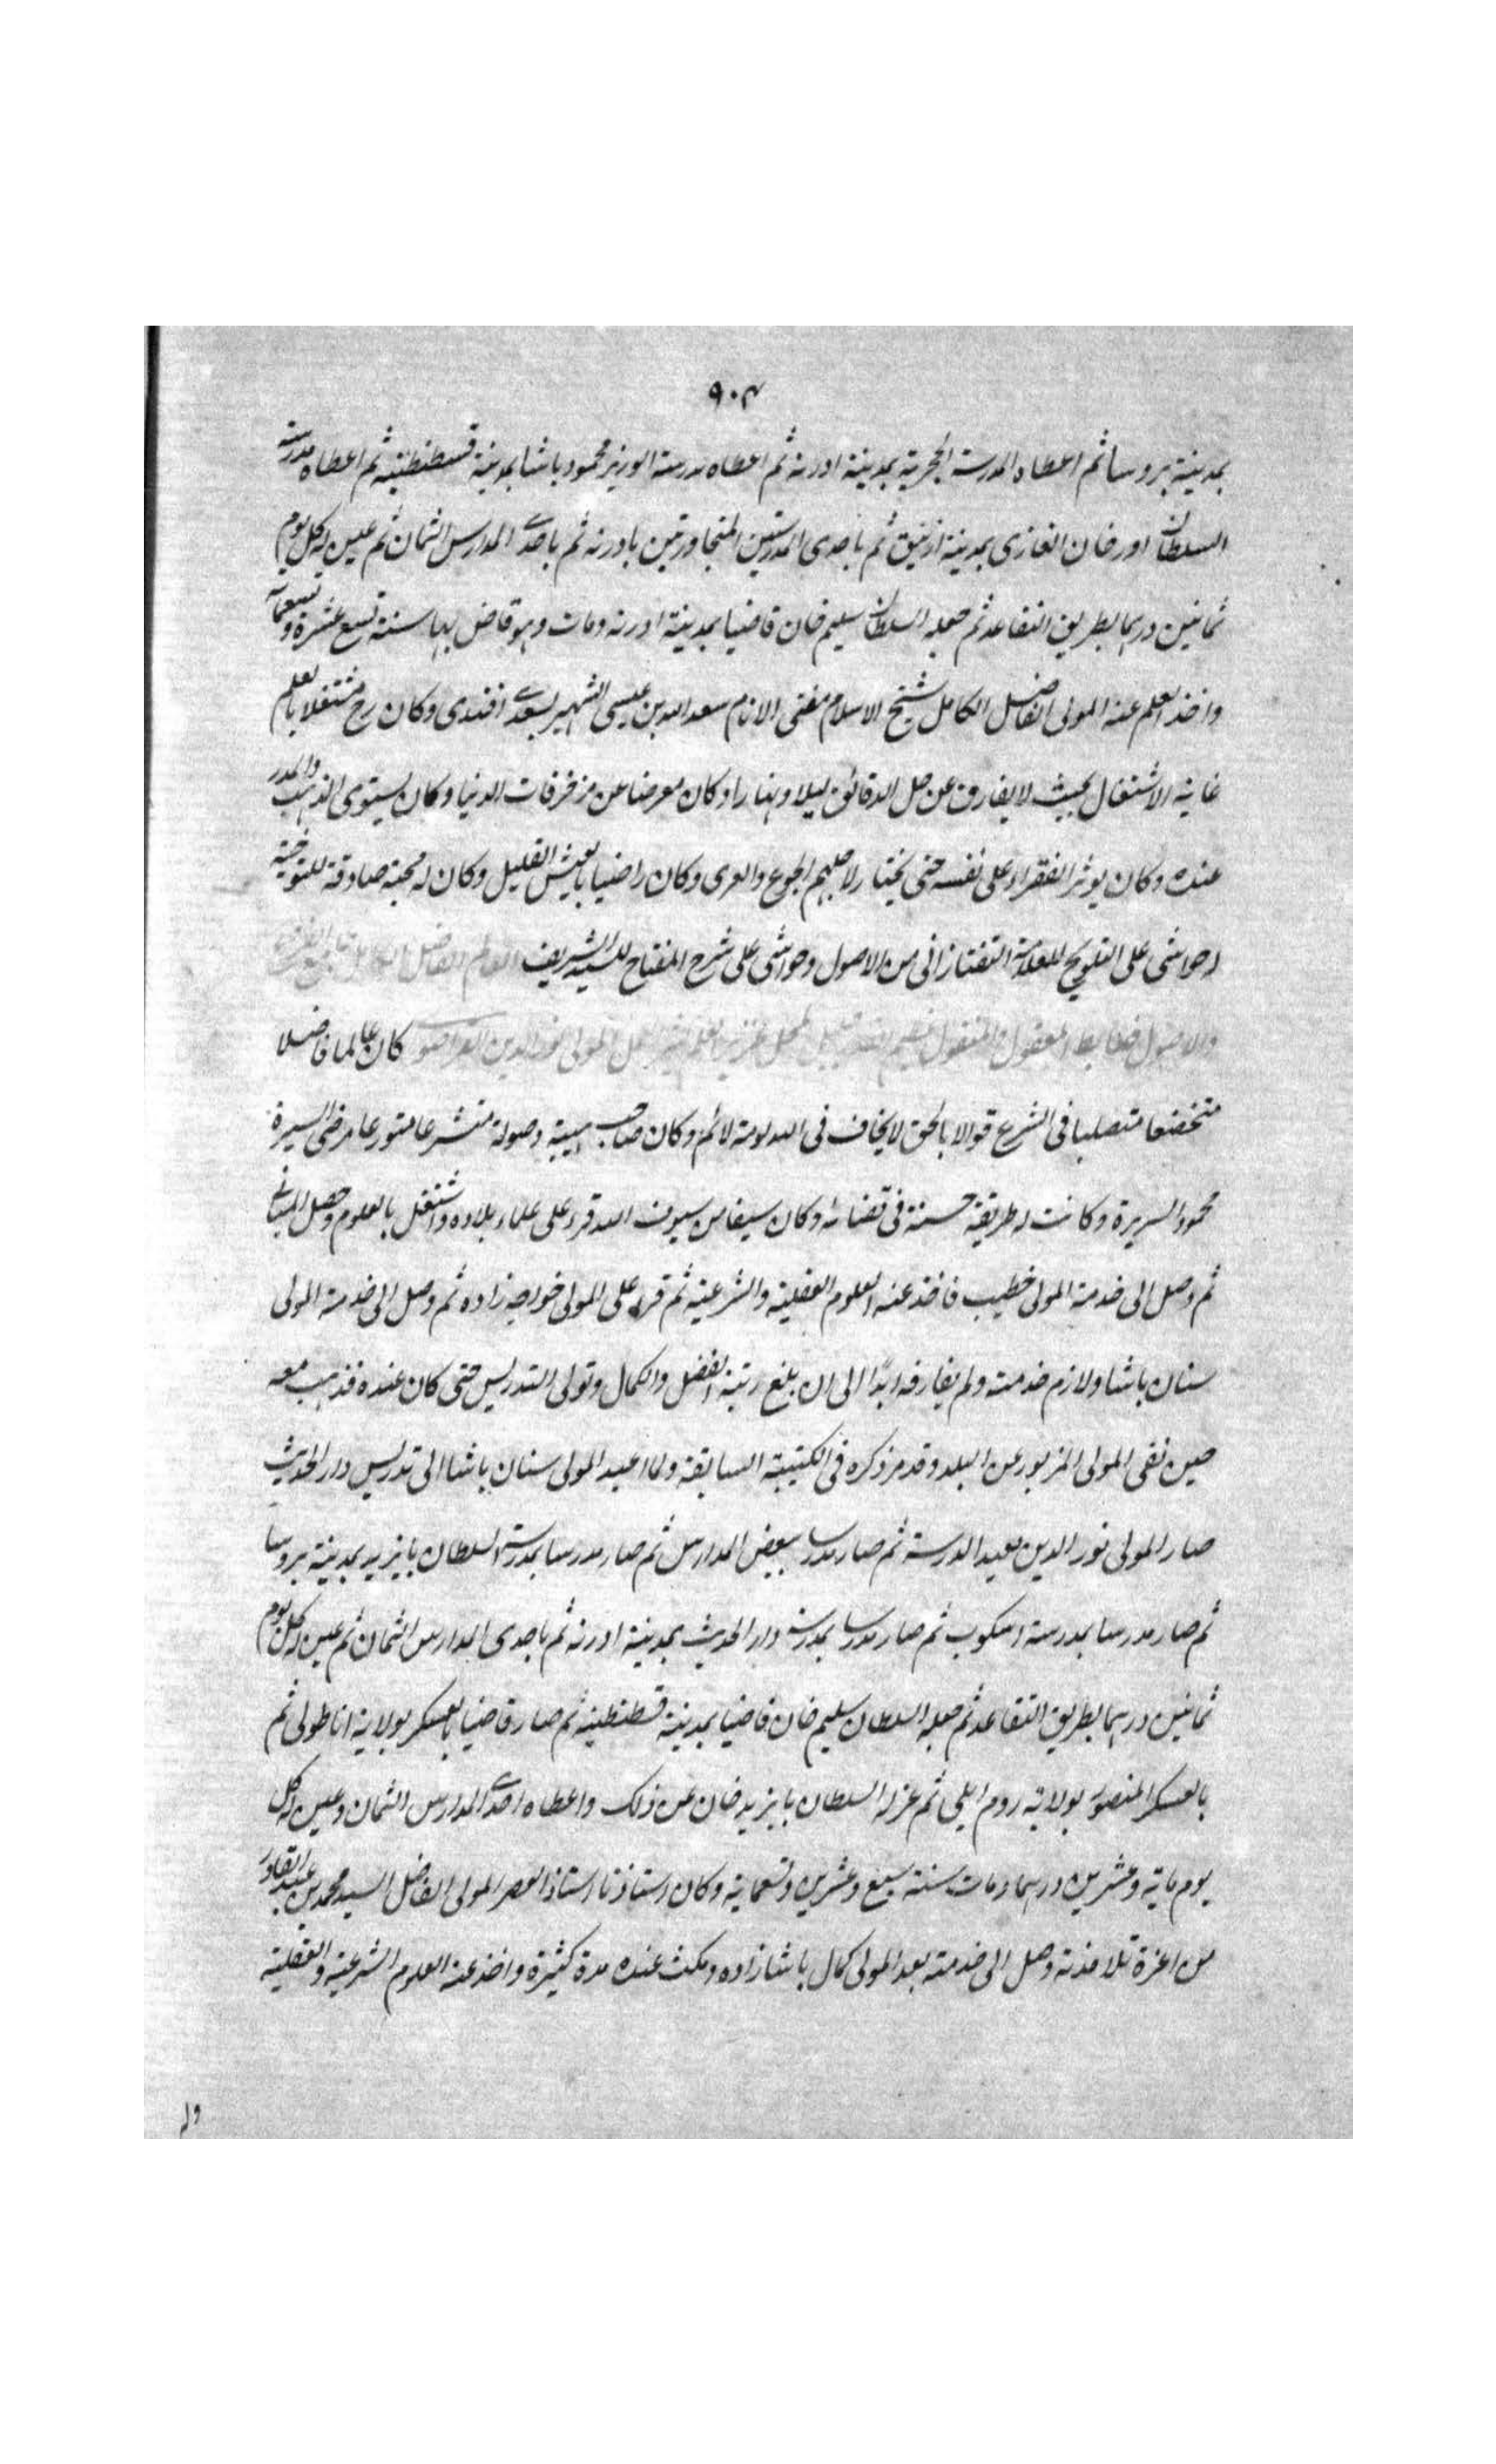 ٩٠٣
بمدينة بروسا ثم اعطاه المدرسة الحجرية بمدينة ادرنه ثم اعطاه مدرسة الوزير محمود باشا بمدينة قسطنطنيه ثم اعطاه مدرسة
السلطان اورخان الغازى بمدينة ازنيق ثم باحدى المدرستين المتجاورتين بادرنه ثم باحدى المدارس الثمان ثم عين له كل يوم
ثمانين درهما بطريق التقاعد ثم جعله السلطان سليم خان قاضيا بمدينة ادرنه ومات وهو قاض بها سنة تسع عشرة وتسعمائة
واخذ العلم عنه المولى الفاضل الكامل شيخ الاسلام مفتى الانام سعد الله بن عيسى الشهير بسعدى افندى وكان رح مشتغلا بالعلم
غاية الاشتغال بحيث لا يفارق عن حل الدقائق ليلا ونهارا وكان معرضا عن مزخرفات الدنيا وكان يستوى الذهب والمدر
عنده وكان يوثر الفقراء على نفسه حتى يختار لاجلهم الجوع والعرى وكان راضيا بالعيش القليل وكان له محبة صادقة للتوخية
حواشى على التلويح للعلامة التفتازانى من الاصول وحواشى على شرح المفتاح للسيد الشريف العالم الفاضل الكامل
والاصول ضابط المعقول والمنقول المولى نور الدين القراصوى كان عالما فاضلا
متخضعا متصلبا فى الشرع قوالا بالحق لا يخاف فى الله لومة لائم وكان صاحب هيبة وصولة متشرعا متورعا مرضى السيرة
محمود السريرة وكانت له طريقة حسنة فى قضائه وكان سيفا من سيوف الله قرء على علماء بلاده واشتغل بالعلوم وحصل المبانى
ثم وصل الى خدمة المولى خطيب فاخذ عنه العلوم العقلية والشرعية ثم قرء على المولى خواجه زاده ثم وصل الى خدمة المولى
سنان باشا ولازم خدمته ولم يفارقه ابدا الى ان بلغ رتبة الفضل والكمال وتولى التدريس حتى كان عنده فذهب معه
حين نفى المولى المزبور عن البلد وقد مر ذكره فى الكتيبة السابقة ولما اعيد المولى سنان باشا الى تدريس دار الحديث
صار المولى نور الدين معيد الدرسة ثم صار مدرسا ببعض المدارس ثم صار مدرسا بمدرسة السلطان بايزيد بمدينة بروسا
ثم صار مدرسا بمدرسة اسكوب ثم صار مدرسا بمدرسة دار الحديث بمدينة ادرنه ثم باحدى المدارس الثمان ثم عين له كل يوم
ثمانين درهما بطريق التقاعد ثم جعله السلطان سليم خان قاضيا بمدينة قسطنطنيه ثم صار قاضيا بالعسكر بولاية اناطولى ثم
بالعسكر المنصور بولاية روم ايلى ثم عزله السلطان بايزيد خان عن ذلك واعطاه احدى المدارس الثمان وعين له كل
يوم ماية وعشرين درهما ومات سنة سبع وعشرين وتسعماية وكان استاذنا استاذ العصر المولى الفاضل السيد محمد بن عبد القادر
من اعزة تلامذته وصل الى خدمته بعد المولى كمال باشا زاده ومكث عنده مدة كثيرة واخذ عنه العلوم الشرعية والعقلية
وله